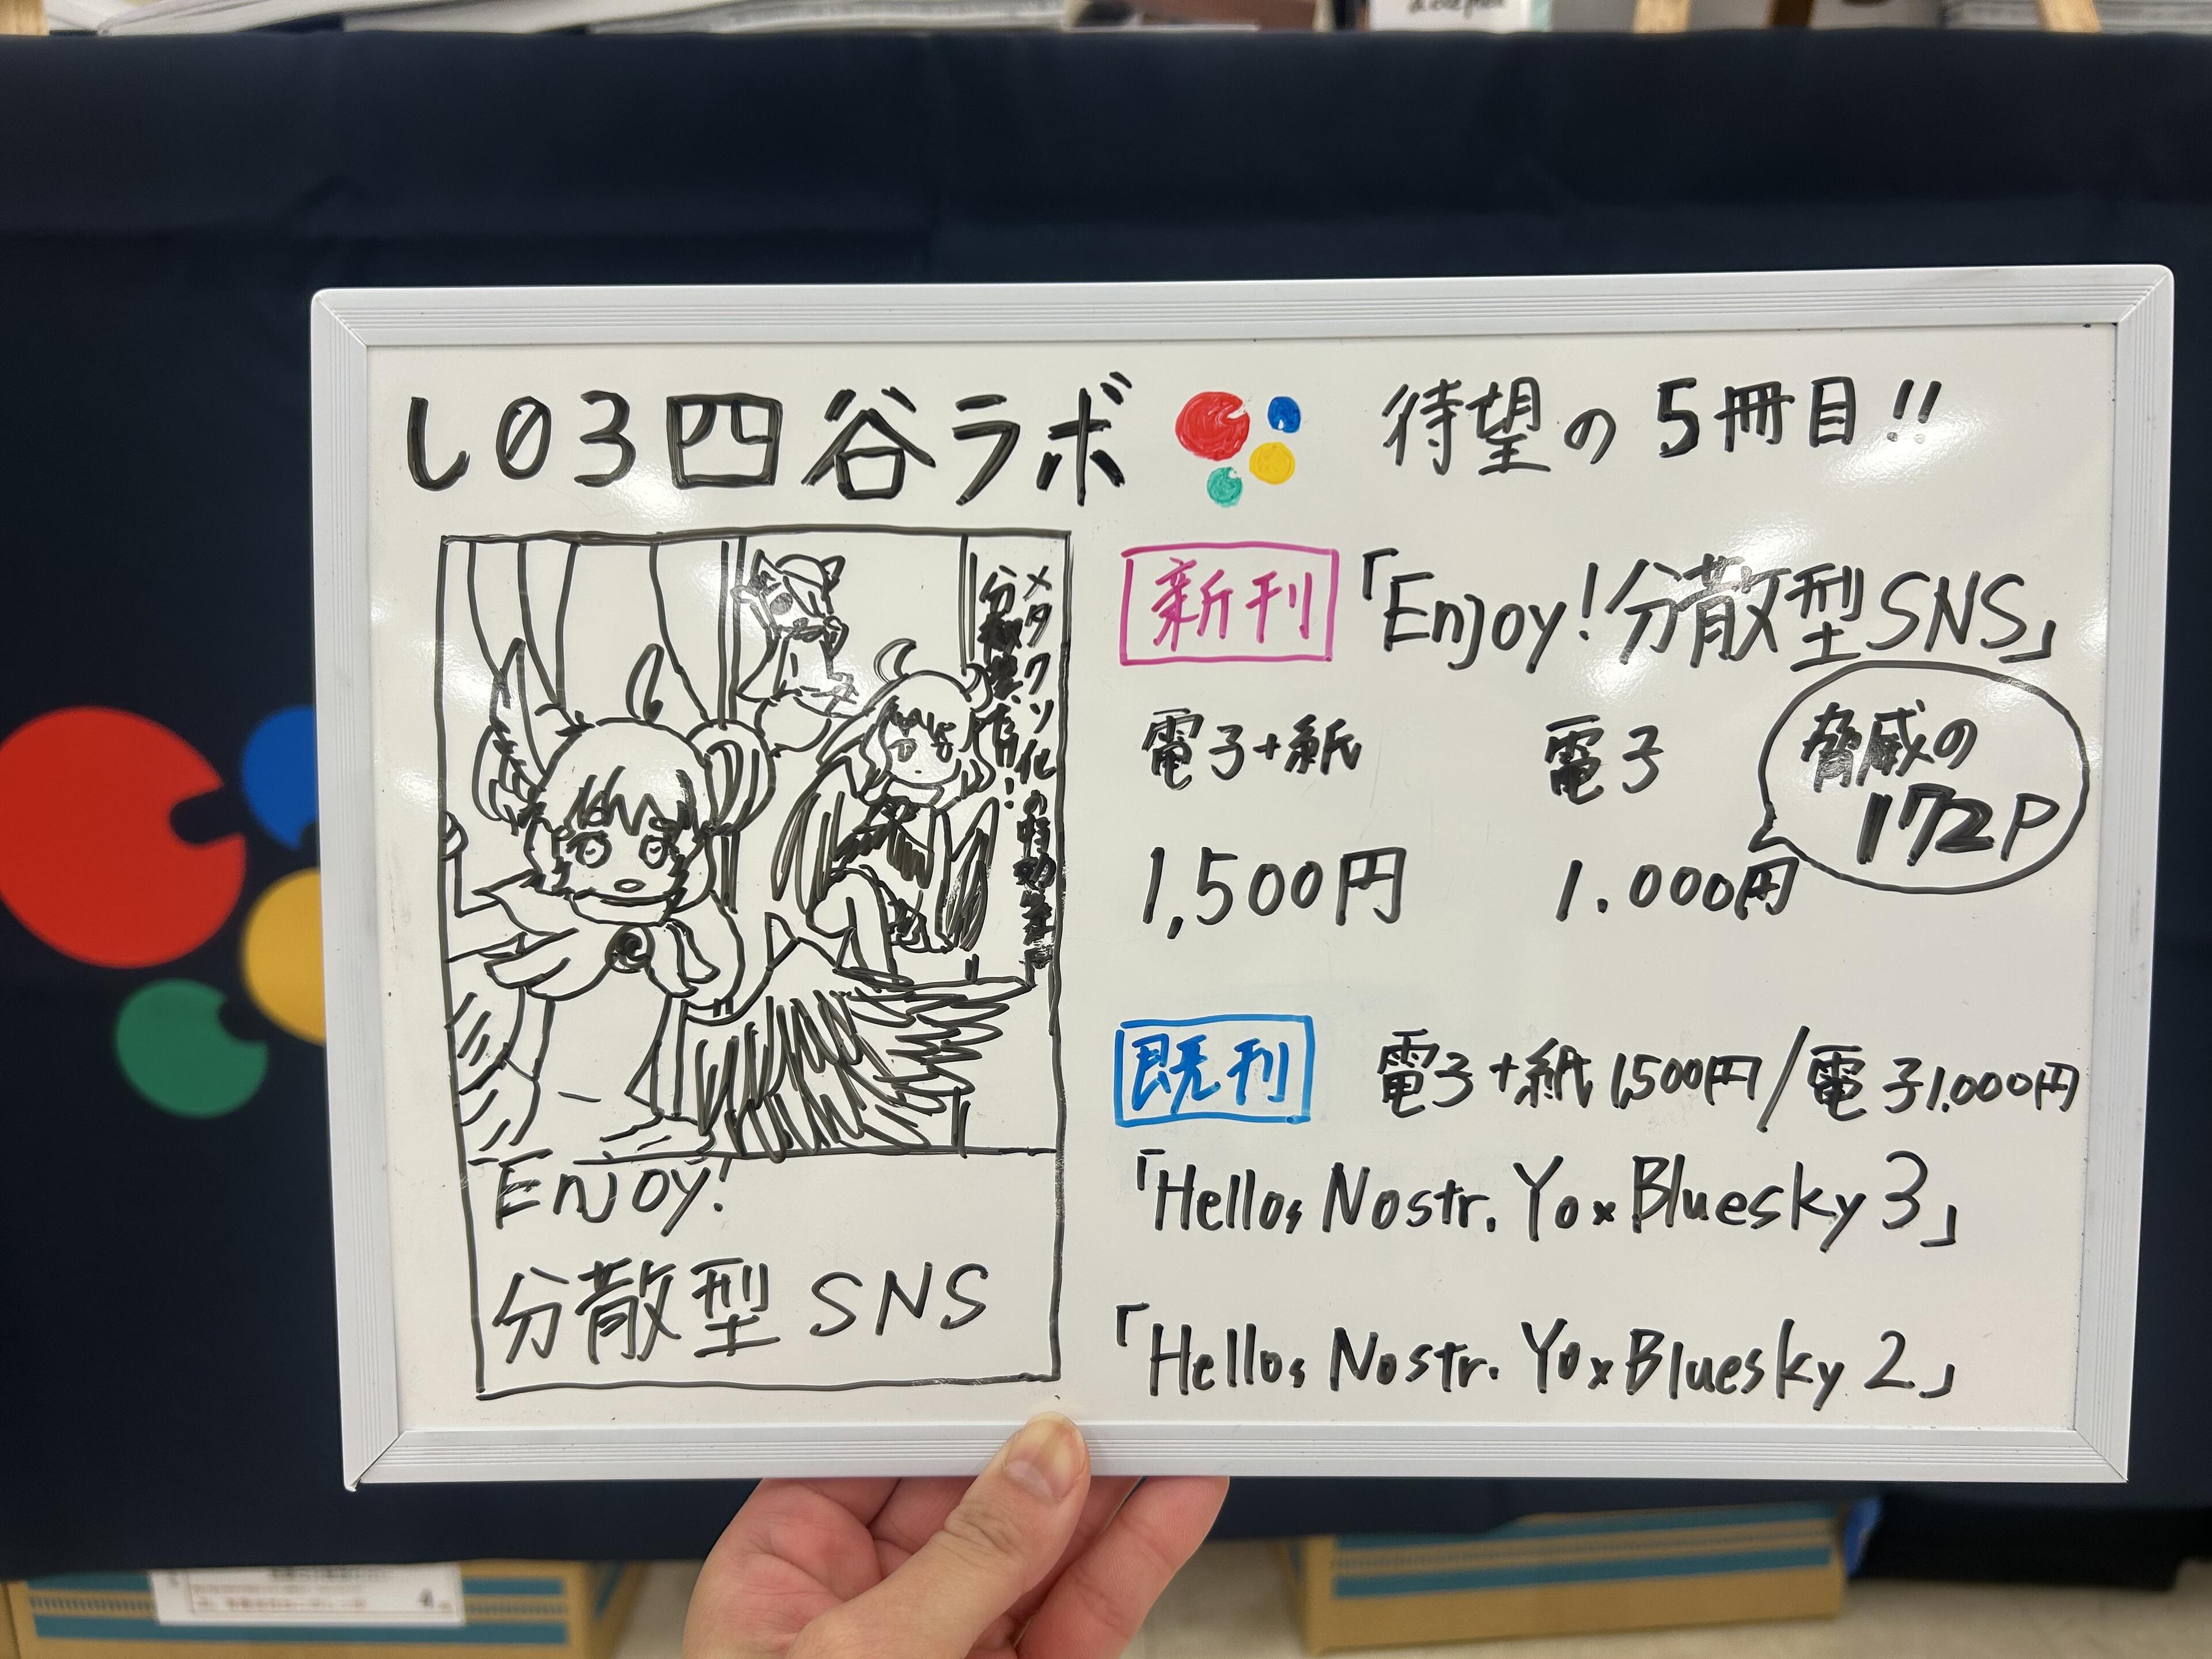 し03 四谷ラボ
待望の5冊目!!
メタクソ化の特効薬
分散共有!
Enjoy!
分散型SNS
新刊 「Enjoy!分散型SNS」
電子+紙 電子
脅威の
172P
1,500円 1.000円
既刊 電子+紙 1,500円/電子1.000円
「Hello, Nostr. Yo×Bluesky 3」
「Hello, Nostr. Yo×Bluesky 2」